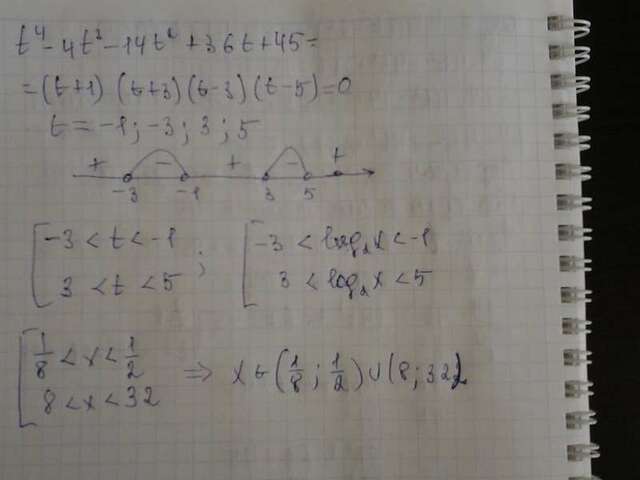 t⁴ - 4t³ - 14t² + 36t + 45 =
= (t+1) (t+3) (t-3) (t-5) = 0
t = -1; -3; 3; 5
+ - + - +
-3 -1 3 5
[ -3 < t < -1 ; [ -3 < log₂x < -1
3 < t < 5 3 < log₂x < 5
[ 1/8 < x < 1/2 ⇒ x ∈ (1/8; 1/2) ∪ (8; 32)
8 < x < 32